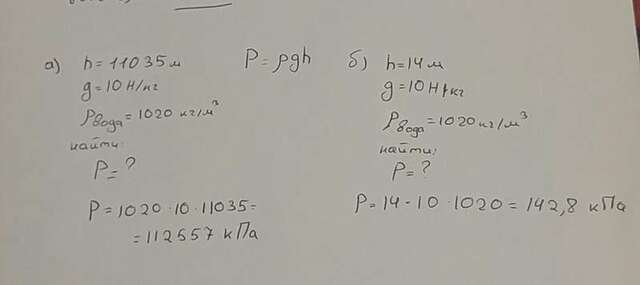 а) h=11035м
g=10 Н/кг
ρвода=1020 кг/м³
найти:
P=?
P=1020·10·11035=
=112557 кПа
P=ρgh
б) h=14м
g=10Н/кг
ρвода=1020кг/м³
найти:
P=?
P=14·10·1020=142,8 кПа